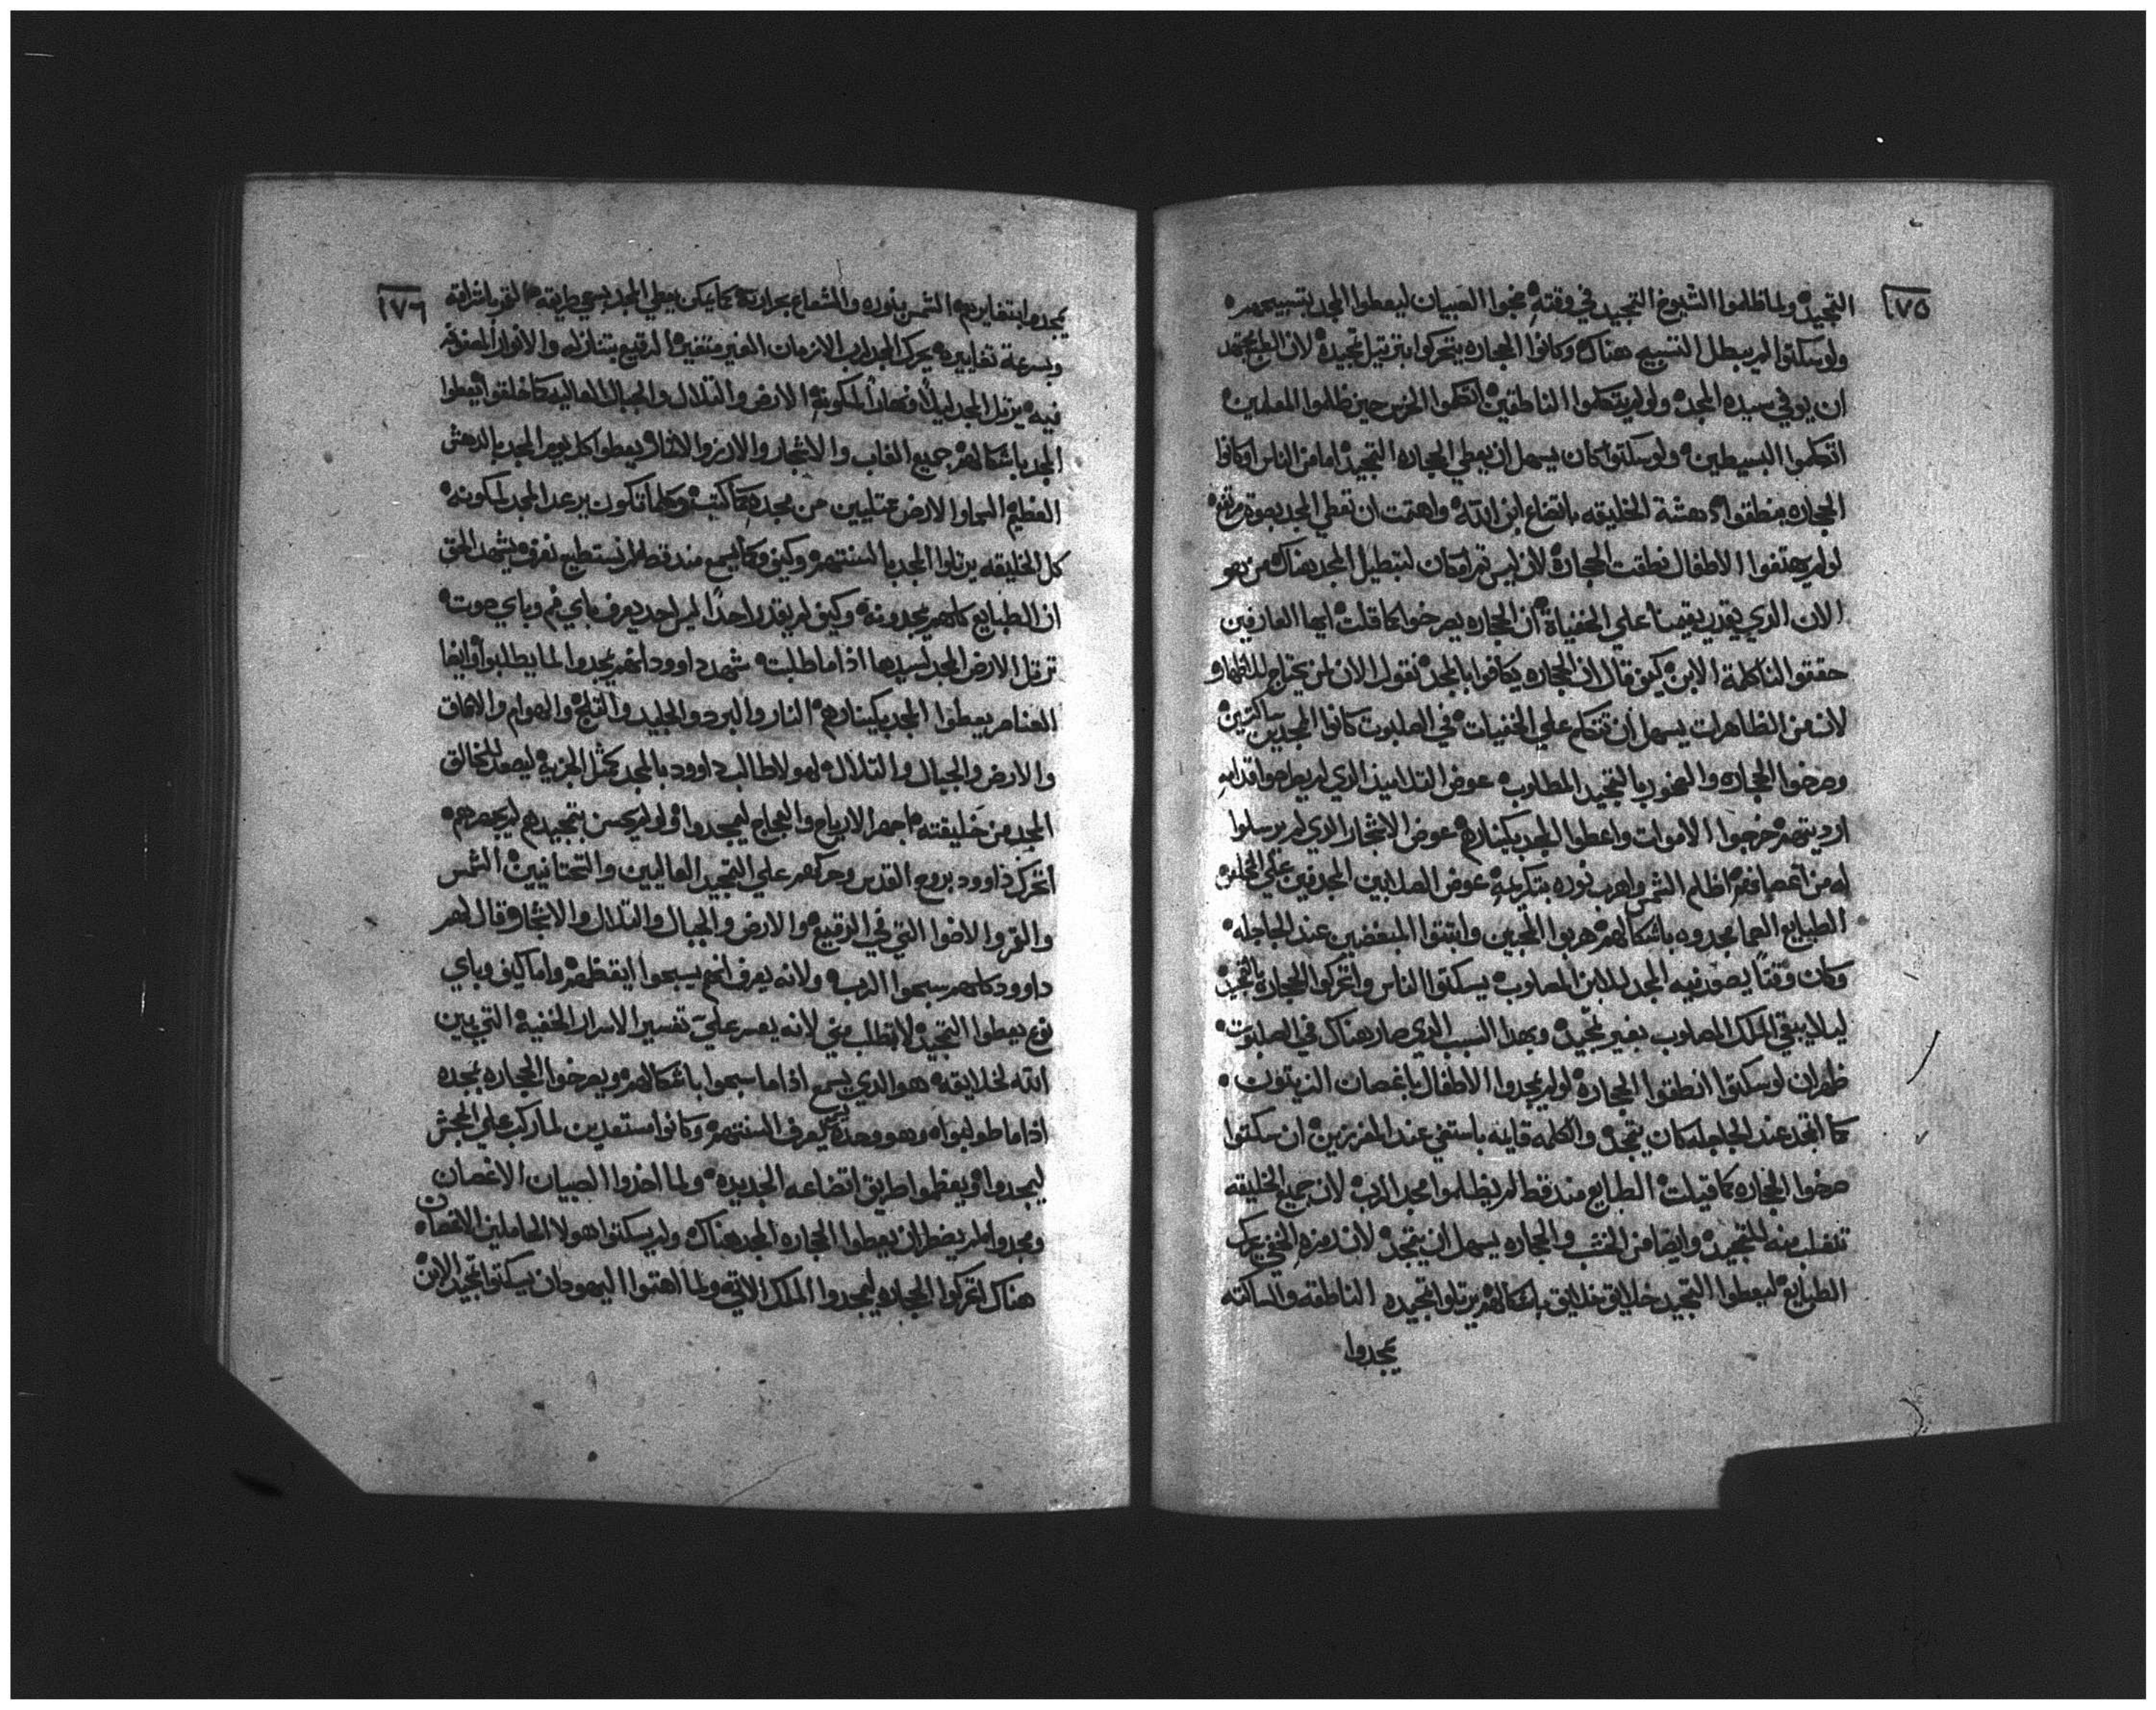 ١٧٥
التمجيد ولما ظلموا الشيوخ التمجيد في وقته عجوا الصبيان ليعطوا المجد بتسبيحهم
ولو سكتوا لم يبطل التسبيح هناك وكانوا الحجاره يتحركوا بترتيل تمجيده لان الطبع مجتهد
ان يوفي سيده المجد ولو لم يتكلموا الناطقين اتكلموا الخرس حين ظلموا المعلمين
اتكلموا البسيطين ولو سكتوا كان يسهل ان يعطي الحجاره التمجيد اما من الناس او كانوا
الحجاره ينطقوا دهشة الخليقه باتضاع ابن الله واهتمت ان تعطي المجد بصوة مرتفع
لو لم يهتفوا الاطفال نطقت الحجاره لان ليس ثم امكان لتبطيل المجد هناك من هو
الان الذي يقدر يقيمنا علي الخفياة ان الحجاره يصرخوا كما قلت ايها العارفين
حققوا لنا كلمة الابن كيف قال ان الحجاره يكافوا بالمجد نقول الان لمن يحتاج
لان من الظاهرات يسهل ان نتكلم علي الخفيات في الصلبوت كانوا المجدين ساكتين
وصرخوا الحجاره والصخور بالتمجيد المطلوب عوض التلاميذ الذي لم يطرحوا قدامه
ارديتهم خرجوا الاموات واعطوا المجد بكينارهم عوض الاشجار الذي لم يرسلوا
له من اغصانهم اظلم الشمس واهرب نوره بتكريمه عوض الصالبين المجدفين علي المخلص
الطبايع الصما مجدوه باشكالهم هربوا المحبين واثبتوا المبغضين عند الجاجله
وكان وقتاً يصعد فيه المجد للابن المصلوب يسكتوا الناس واتحركوا الحجاره بالتمجيد
ليلا يبقي الملك المصلوب بغير تمجيد وبهذا السبب الذي صار هناك في الصلبوت
ظهر ان لو سكتوا انطقوا الحجاره لو لم يمجدوا الاطفال باغصان الزيتون
كما اتمجد عند الجاجله كان يتمجد والكلمه قايله باستفي عند المفرزين ان سكتوا
صرخوا الحجاره كما قيلت الطبايع منه قط لم يظلموا مجد الرب لان جميع الخليقه
تنغلب منه للتمجيد وايضا من الخشب والحجاره يسهل ان يتمجد لان رمزه الخفي يحرك
الطبايع ليعطوا التمجيد خلايق خلايق باشكالهم يرتلوا تمجيده الناطقه والساكته
يمجدوا
١٧٦
يمجده ابتغايرهم الشمس بنوره والشعاع بحرارته كما يمكن يعطي المجد بسعي طريقه القمر باشراقه
وبسرعة تغاييره يحرك المجد لرب الازمان الغير متغير الرقيع بتنازله والانوار المغروزه
فيه يرتل المجد ليلاً ونهاراً لمكونه الارض والتلال والجبال العاليه كما خلقوا يعطوا
المجد باشكالهم جميع الغاب والاشجار والارز والاثمار يعطوا كل يوم المجد بالدهش
العظيم السما والارض ممتليين من مجده كما كتب وكلما تكون يرعد المجد لمكونه
كل الخليقه يرتلوا المجد بالسنتهم وكيف وكما يسمع منه قط لم نستطيع نعرف يشهد الحق
ان الطبايع كلهم يمجدونه وكيف لم يقدر احداً ليس احد يعرف باي فم وباي صوت
ترتل الارض المجد لسيدها اذا ما طلبت شهد داوود انهم يمجدوا لما يطلبوا وايضا
العناصر يعطوا المجد بكينارهم النار والبرد والجليد والثلج والهوام والاعماق
والارض والجبال والتلال لهولا طالب داوود بالمجد كمثل الجزيه ليصعد للخالق
المجد من خليقته جمهر الارياح والعجاج ليمجدوا ولو لم يحسن بتمجيدهم لم يجمهرهم
اتحرك داوود بروح القدس وحركهم علي التمجيد العاليين والتحتانيين الشمس
والقمر والاضوا التي في الرقيع والارض والجبال والتلال والاشجار وقال لهم
داوود كلهم سبحوا الرب ولانه يعرف انهم يسبحوا ايقظهم واما كيف وباي
نوع يعطوا التمجيد لا تطلب مني لانه يعسر علي تفسير الاسرار الخفيه التي بين
الله لخلايقه هو الذي يسمع اذا ما سبحوا باشكالهم ويصرخوا الحجاره بمجده
اذا ما طولبوا وهو وحده يعرف السنتهم وكانوا مستعدين لما ركب علي الجحش
ليمجدوا ويعظموا طريق اتضاعه الجديده ولما اخذوا الصبيان الاغصان
ومجدوا لم يضطر ان يعطوا الحجاره المجد هناك ولو سكتوا هولا الحاملين الاغصان
هناك اتحركوا الحجاره ليمجدوا الملك الاتي ولما اهتموا اليهود ان يسكتوا تمجيد الابن